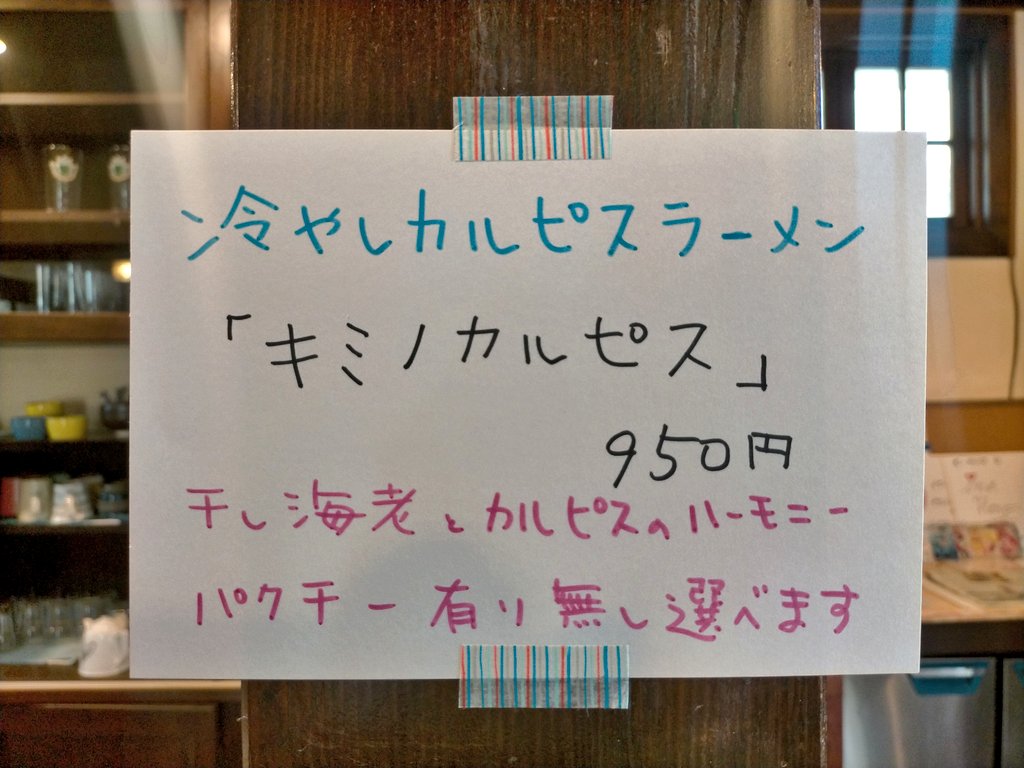 冷やしカルピスラーメン
「キミノカルピス」
950円
干し海老とカルピスのハーモニー
パクチー有り無し選べます